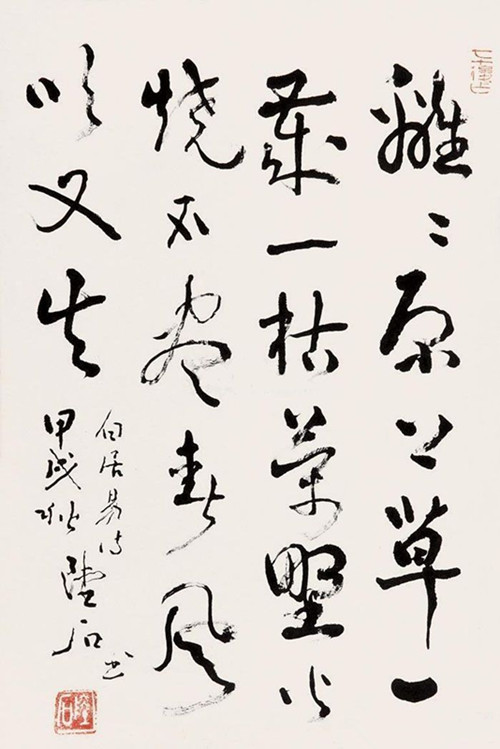 離〻原上草一
歲一枯榮野火
燒不盡春風
吹又生
白居易詩
甲戌秋陸石書
陸石